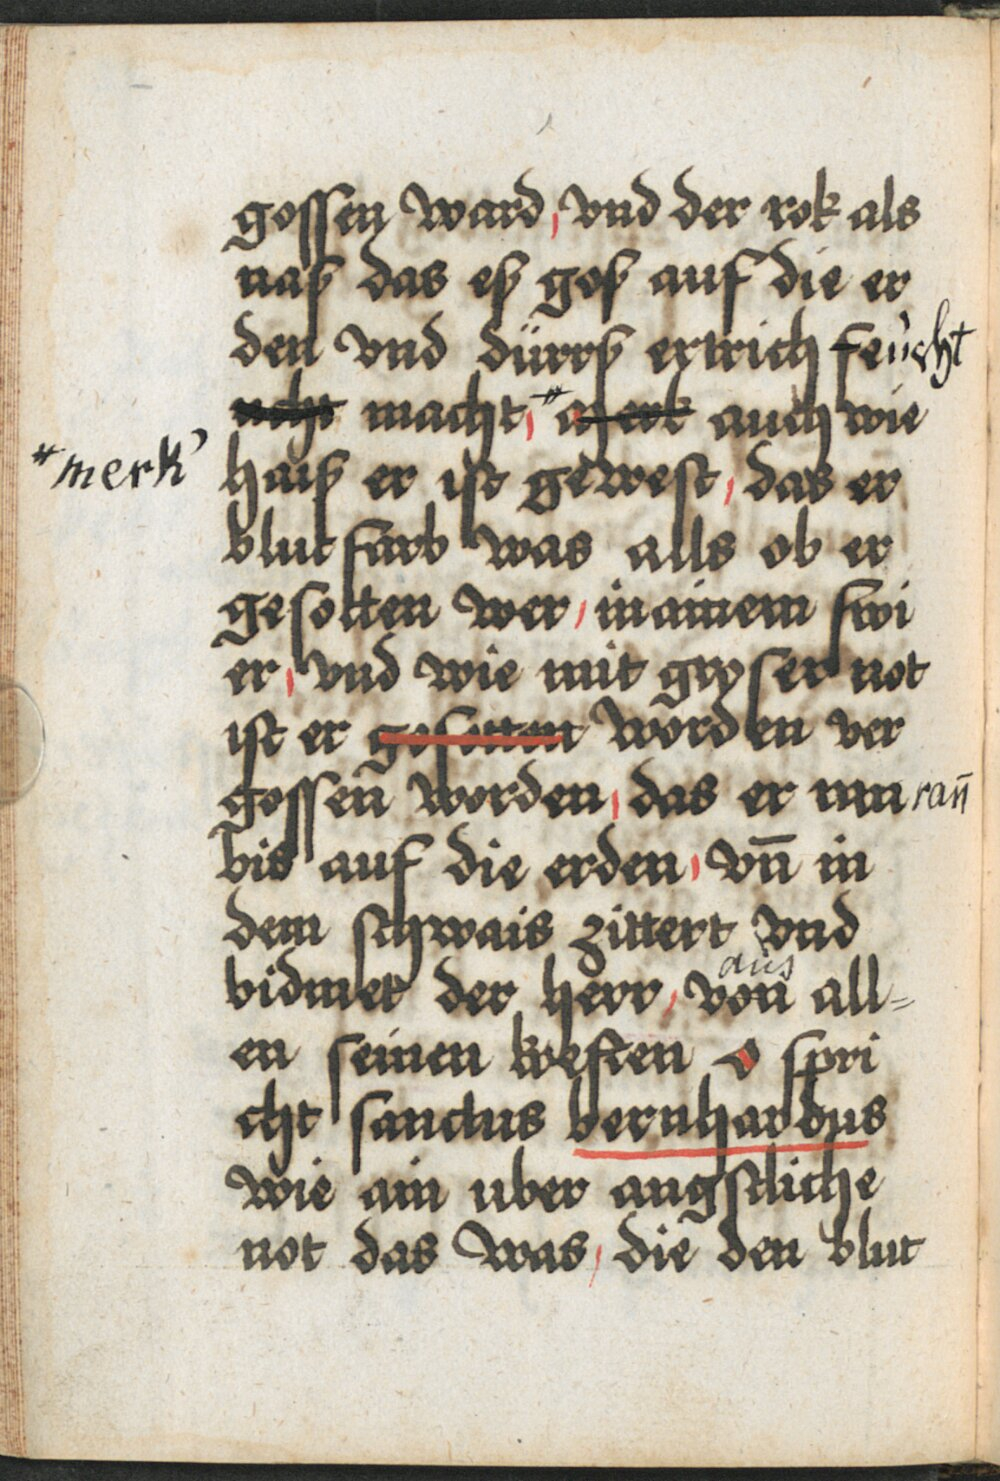 gossen ward, vnd der rok als
naß das eß goß auf die er
den vnd dürrß ertrich feücht
ucht macht, * merk auch wie
* merk
haiß er ist gewest, das er
blut farb was alls ob er
gesotten wer, in ainem fwi
er, vnd wie mit grosser not
ist er gesotten worden ver
gossen worden, das er rann
bis auf die erden, vn̄ in
dem schwais zittert vnd
aus
bidmet der herr, von all=
en seinen kreften o spri
cht sanctus bernhardus
wie ain uber angstliche
not das was, die den blut